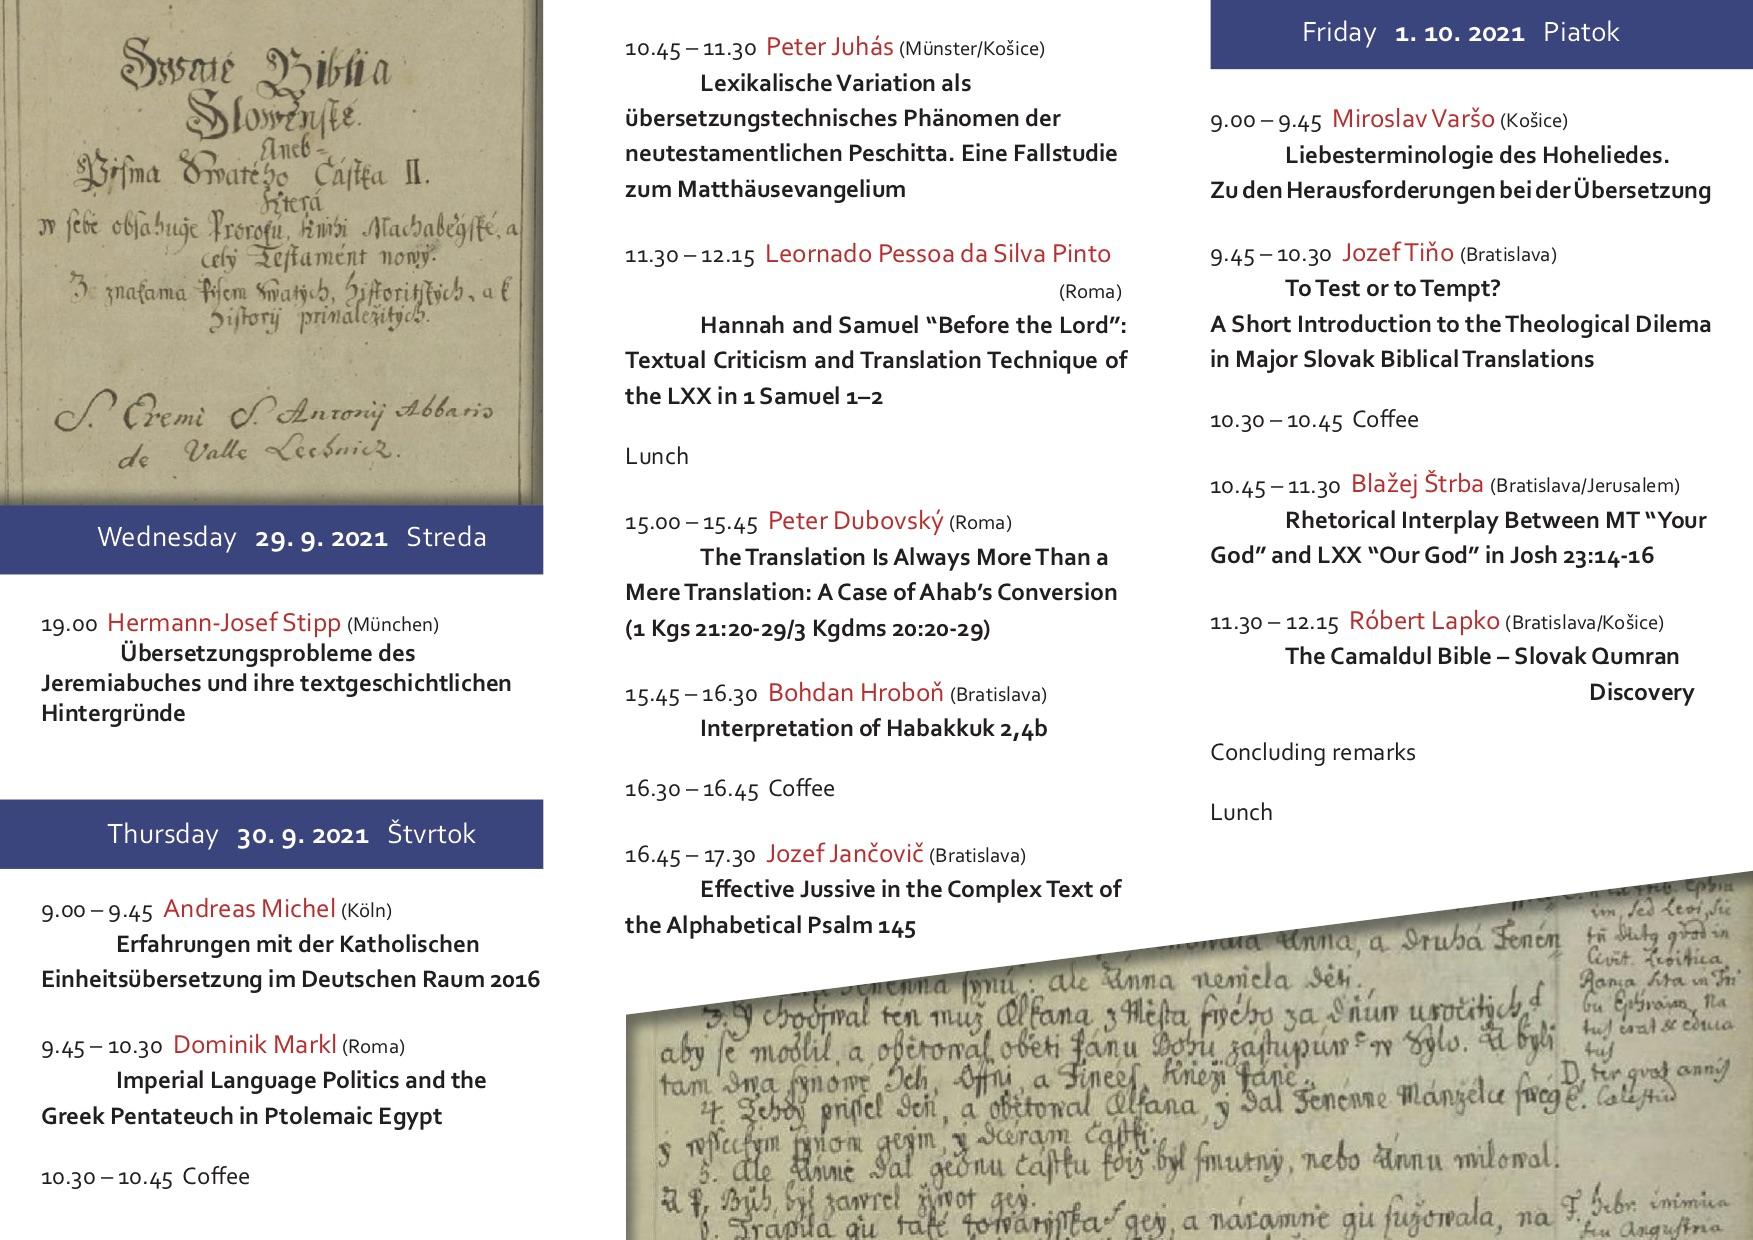 Swaté Biblia
Slowénské.
Aneb
Pisma Swatého Částka II.
Která
w sebe obsahuge Proroku, Knihi Machabegské, a
celý Testamént nowý.
Pisem Swatých, Historitských, a k
History prinaležitých.
S. Eremi S. Antonij Abbatis
de Valle Lechnicz.
Wednesday 29. 9. 2021 Streda
19.00 Hermann-Josef Stipp (München)
Übersetzungsprobleme des
Jeremiabuches und ihre textgeschichtlichen
Hintergründe
Thursday 30. 9. 2021 Štvrtok
9.00 – 9.45 Andreas Michel (Köln)
Erfahrungen mit der Katholischen
Einheitsübersetzung im Deutschen Raum 2016
9.45 – 10.30 Dominik Markl (Roma)
Imperial Language Politics and the
Greek Pentateuch in Ptolemaic Egypt
10.30 – 10.45 Coffee
10.45 – 11.30 Peter Juhás (Münster/Košice)
Lexikalische Variation als
übersetzungstechnisches Phänomen der
neutestamentlichen Peschitta. Eine Fallstudie
zum Matthäusevangelium
11.30 – 12.15 Leornado Pessoa da Silva Pinto
(Roma)
Hannah and Samuel “Before the Lord”:
Textual Criticism and Translation Technique of
the LXX in 1 Samuel 1–2
Lunch
15.00 – 15.45 Peter Dubovský (Roma)
The Translation Is Always More Than a
Mere Translation: A Case of Ahab’s Conversion
(1 Kgs 21:20-29/3 Kgdms 20:20-29)
15.45 – 16.30 Bohdan Hroboň (Bratislava)
Interpretation of Habakkuk 2,4b
16.30 – 16.45 Coffee
16.45 – 17.30 Jozef Jančovič (Bratislava)
Effective Jussive in the Complex Text of
the Alphabetical Psalm 145
Friday 1. 10. 2021 Piatok
9.00 – 9.45 Miroslav Varšo (Košice)
Liebesterminologie des Hoheliedes.
Zu den Herausforderungen bei der Übersetzung
9.45 – 10.30 Jozef Tiňo (Bratislava)
To Test or to Tempt?
A Short Introduction to the Theological Dilema
in Major Slovak Biblical Translations
10.30 – 10.45 Coffee
10.45 – 11.30 Blažej Štrba (Bratislava/Jerusalem)
Rhetorical Interplay Between MT “Your
God” and LXX “Our God” in Josh 23:14-16
11.30 – 12.15 Róbert Lapko (Bratislava/Košice)
The Camaldul Bible – Slovak Qumran
Discovery
Concluding remarks
Lunch
Anna, a druhá Fenén
ale Anna nemela děti.
3. Y chodjwal ten muž Elkana z Města swého za dňúw uročitých
aby se modlil, a obětowal oběti Pánu Bohu zástupúw w Sylo. A byli
tam dwa synowé Heli, Offni, a Finees, Kneži Páně.
4. Tehdy prišel deň, a obětowal Elkana, y dal Fenénne Manželce swég
y wsseckym synom gegim, y dcéram částki.
5. Ale Anně dal gednu částku byl smutný, nebo Annu milowal.
Búh byl zawrel žiwot gey.
6. Trápila gu také gey, a náramně gu sužowala, na